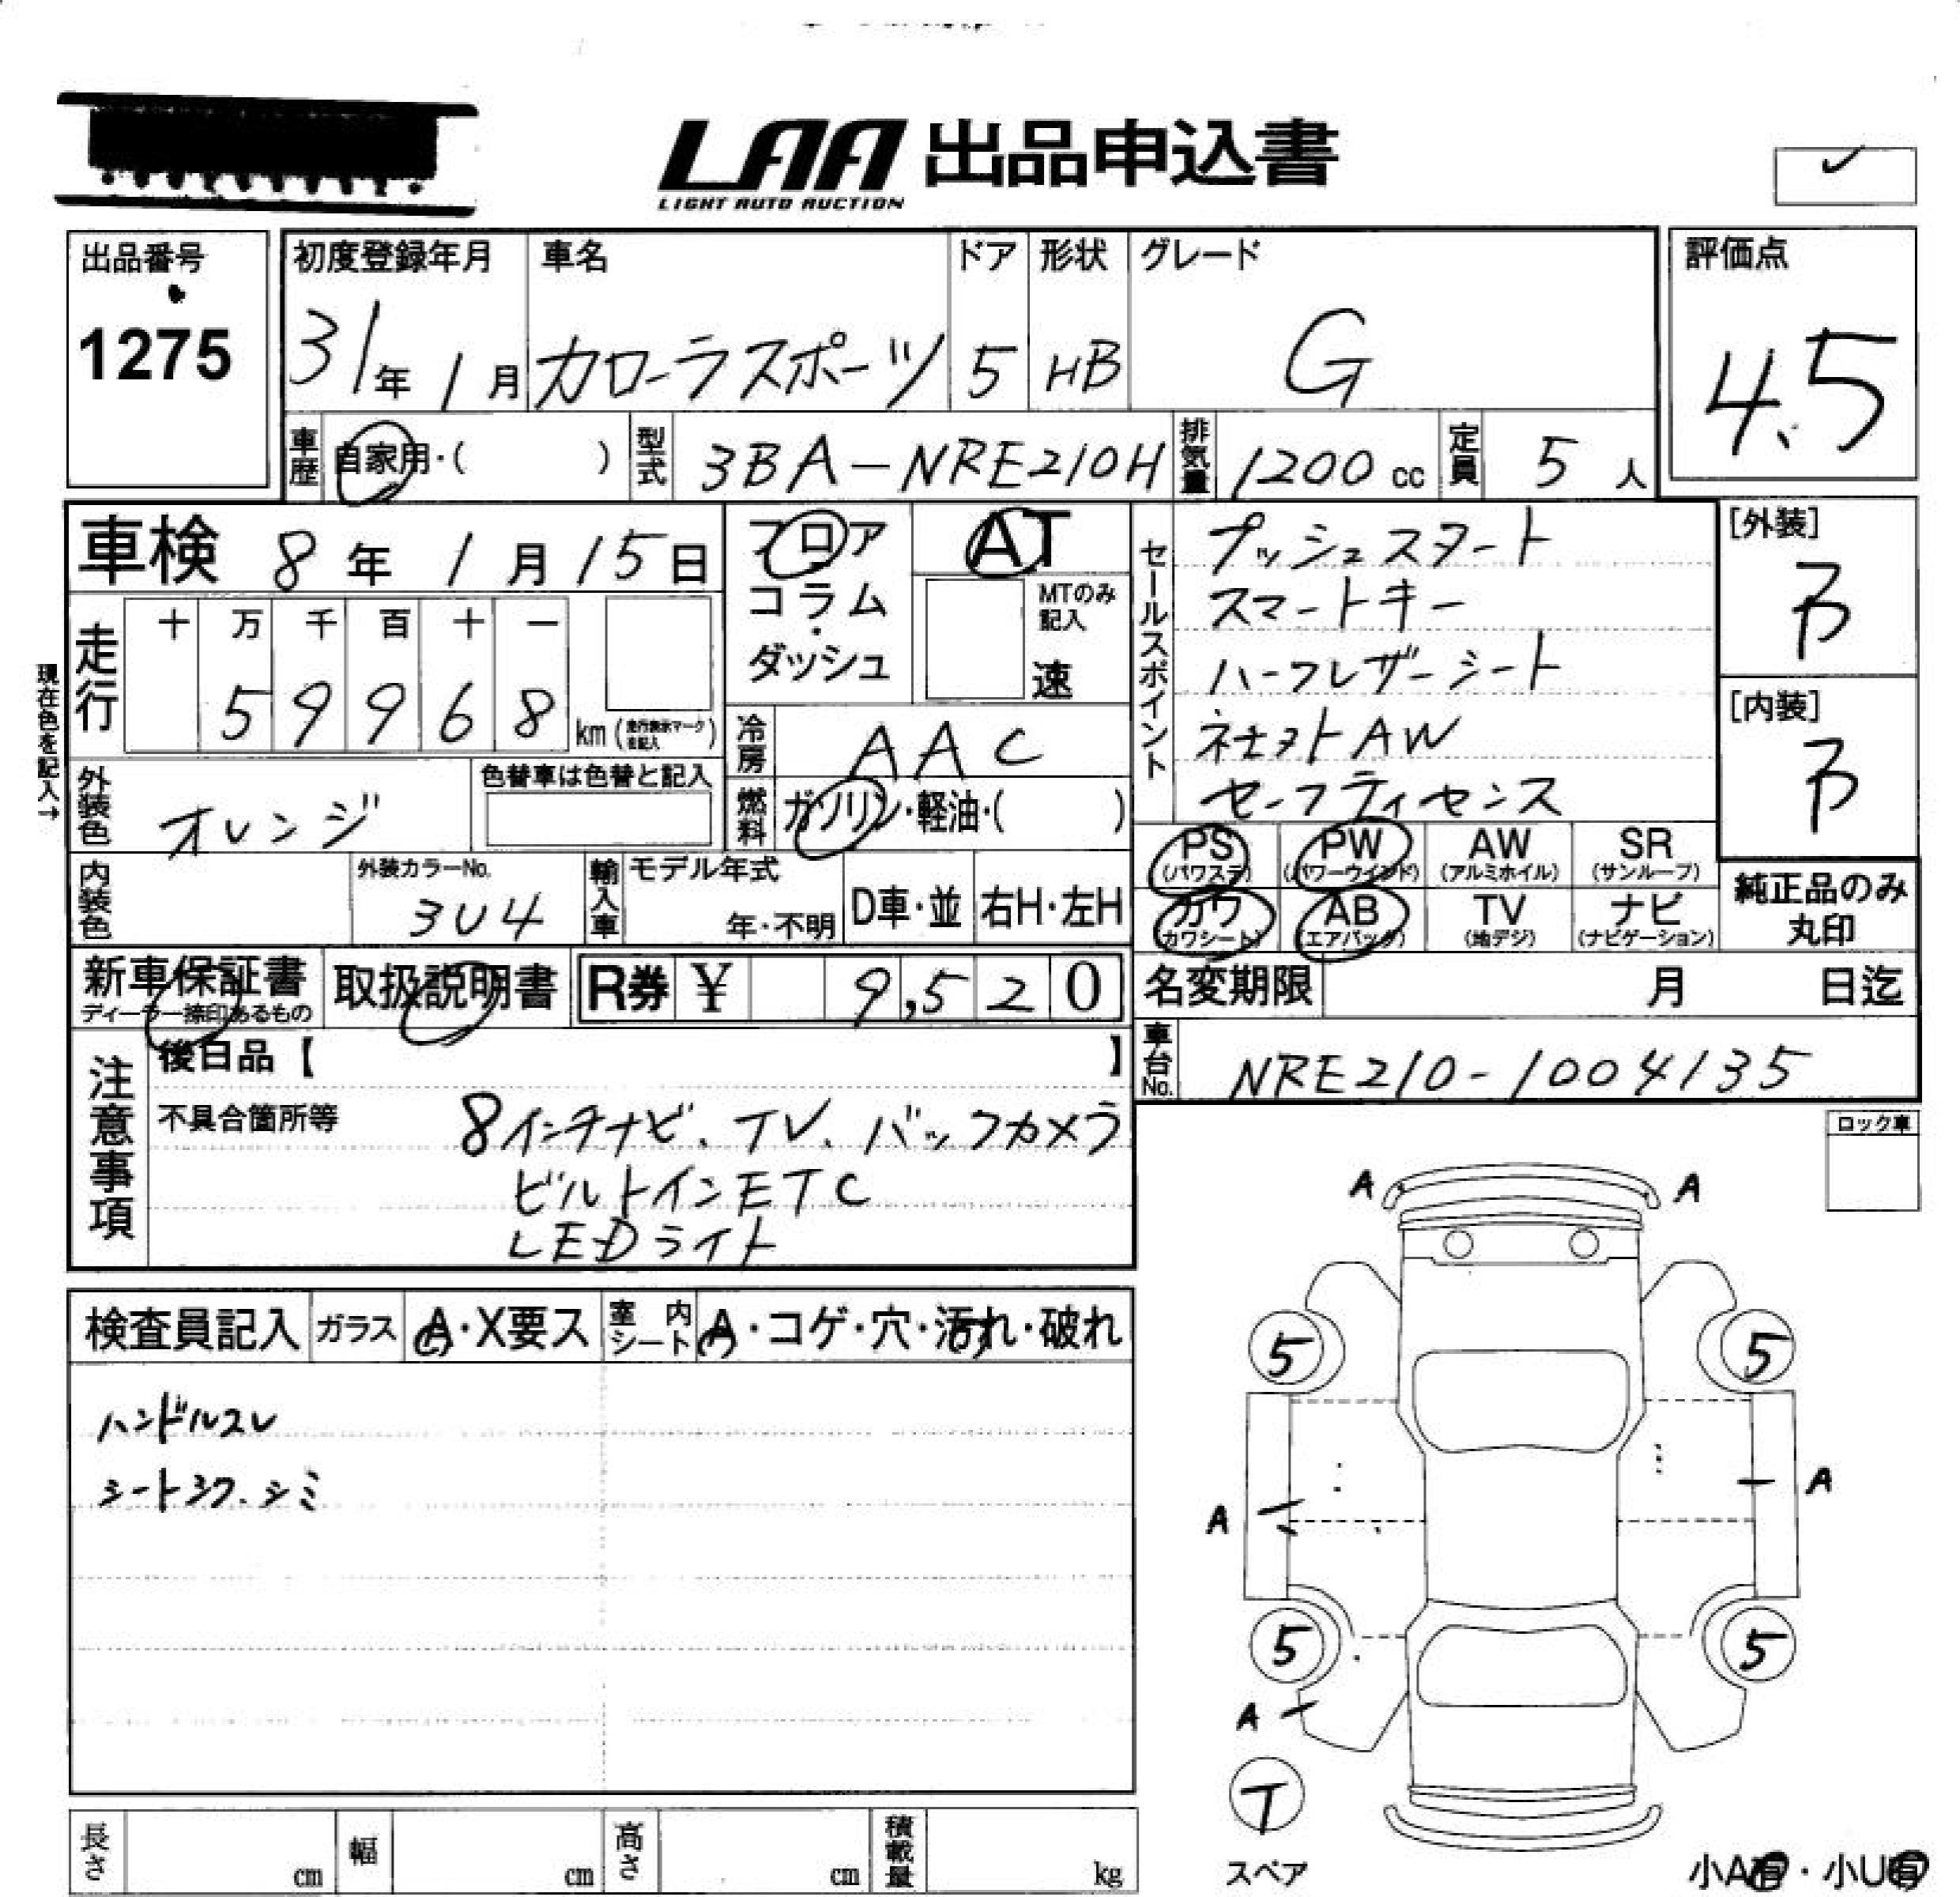 LAA 出品申込書
LIGHT AUTO AUCTION
出品番号
1275
初度登録年月
31年 1月
車名
カローラスポーツ
ドア
5
形状
HB
グレード
G
評価点
4.5
車歴
自家用・( )
型式
3BA-NRE210H
排気量
1200 cc
定員
5 人
車検 8年 1月 15日
フロア
コラム
・
ダッシュ
AT
MTのみ
記入
速
セールスポイント
プッシュスタート
スマートキー
ハーフレザーシート
社外AW
セーフティセンス
[外装]
[内装]
現在色を記入→
走行
十 万 千 百 十 一
5 9 9 6 8 km
冷房
AAC
外装色
オレンジ
色替車は色替と記入
燃料
ガソリン・軽油・( )
PS
(パワステ)
PW
(パワーウインド)
AW
(アルミホイル)
SR
(サンルーフ)
内装色
外装カラーNo.
3U4
輸入車
モデル年式
年・不明
D車・並
右H・左H
カワ
(カワシート)
AB
(エアバック)
TV
(地デジ)
ナビ
(ナビゲーション)
純正品のみ
丸印
新車保証書
ディーラー捺印あるもの
取扱説明書
R券 ¥ 9,520
名変期限 月 日迄
車台No.
NRE210-1004135
注意事項
後日品【 】
不具合箇所等
8インチナビ、TV、バックカメラ
ビルトインETC
LEDライト
ロック車
検査員記入
ガラス
A・X要ス
室内シート
A・コゲ・穴・汚れ・破れ
ハンドルスレ
シートシワ、シミ
A A
5 5
A
A
5 5
A
T
スペア
小A有・小U有
長さ cm
幅 cm
高さ cm
積載量 kg